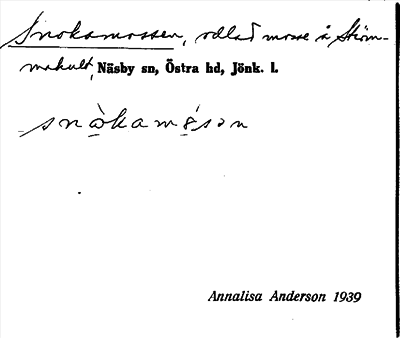 Snokamossen, odlad mosse å Sköm-
makult, Näsby sn, Östra hd, Jönk. l.
snòkamósən
Annalisa Anderson 1939